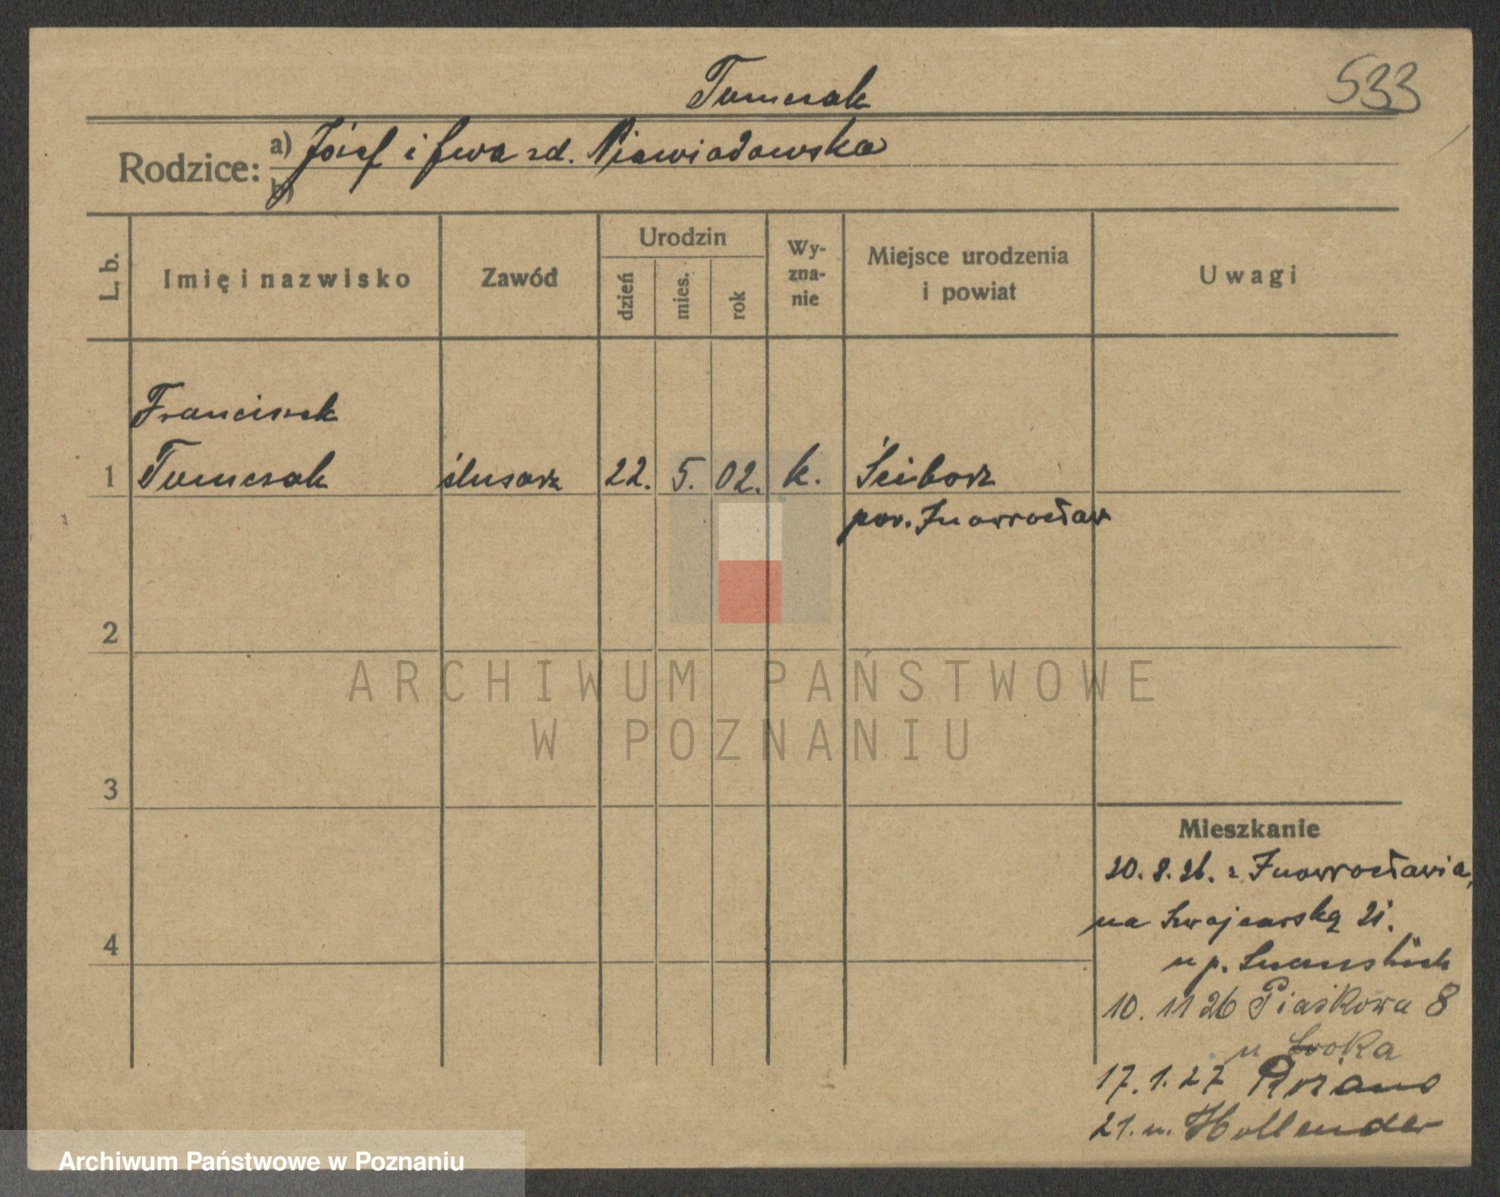 533
Tomczak
Rodzice: a) Józef i Ewa zd. Niewiadowska
b)
L. b.
Imię i nazwisko
Zawód
Urodzin
dzień
mies.
rok
Wy-
zna-
nie
Miejsce urodzenia
i powiat
Uwagi
Franciszek
1 Tomczak ślusarz 22. 5. 02. k. Ściborz
pow. Inowrocław
2
3
4
Mieszkanie
20. 8. 26. z Inowrocławia,
na Szwajcarską 21.
u p.
10. 11 26 Piaskowa 8
u Sroka
17. 1. 27 Różana
21. u. Hollender
ARCHIWUM PAŃSTWOWE
W POZNANIU
Archiwum Państwowe w Poznaniu